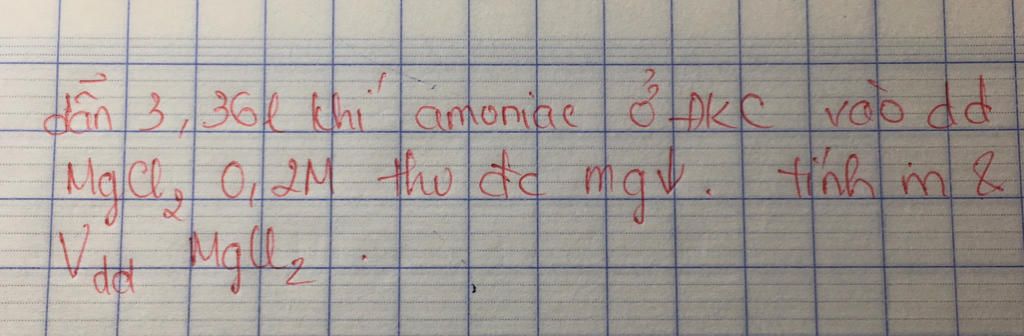 dẫn 3,36l khí amoniac ở ĐKC vào dd
MgCl₂ 0,2M thu đc mg↓. tính m &
Vdd MgCl₂.